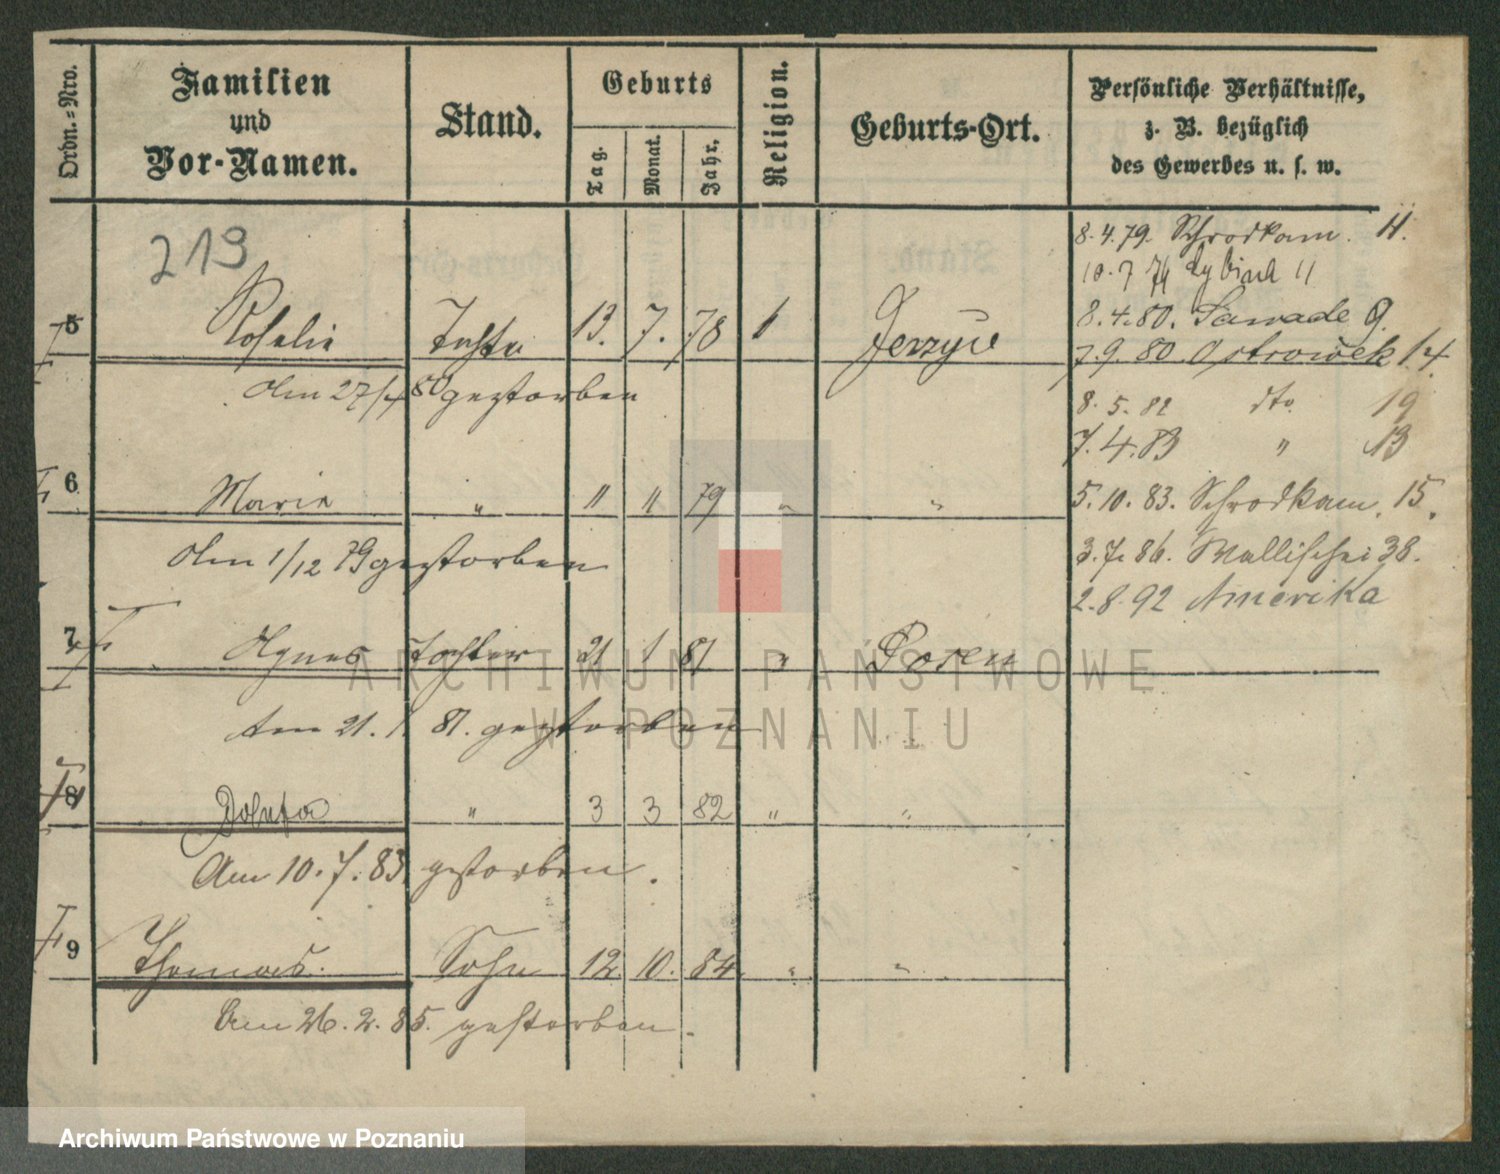 Ordn.-Nro.
Familien
und
Vor-Namen.
Stand.
Geburts
Tag.
Monat.
Jahr.
Religion.
Geburts-Ort.
Persönliche Verhältnisse,
z. B. bezüglich
des Gewerbes u. s. w.
213
8.4.79. Schrodkam. 11.
10.7 79 11
8.4.80. Sawade 9.
7.9.80 Ostrowek 14.
5 Rosalie 13. 7. 78 Jerzyce
Am 27/4 80 gestorben
8.5.82 dto. 19
7.4.83 " 13
6 Marie " 11 11 79 " "
5.10.83. Schrodkam. 15.
Am 1/12 79 gestorben
3.7.86. Wallischei 38.
2.8.92 Amerika
7 Agnes Tochter 21 1 81 " Posen
am 21. 1 81. gestorben
8 " 3 3 82 " "
Am 10.7.83 gestorben.
9 Thomas. Sohn 12 10. 84. " "
Am 26.2.85. gestorben.
ARCHIWUM PAŃSTWOWE
W POZNANIU
Archiwum Państwowe w Poznaniu